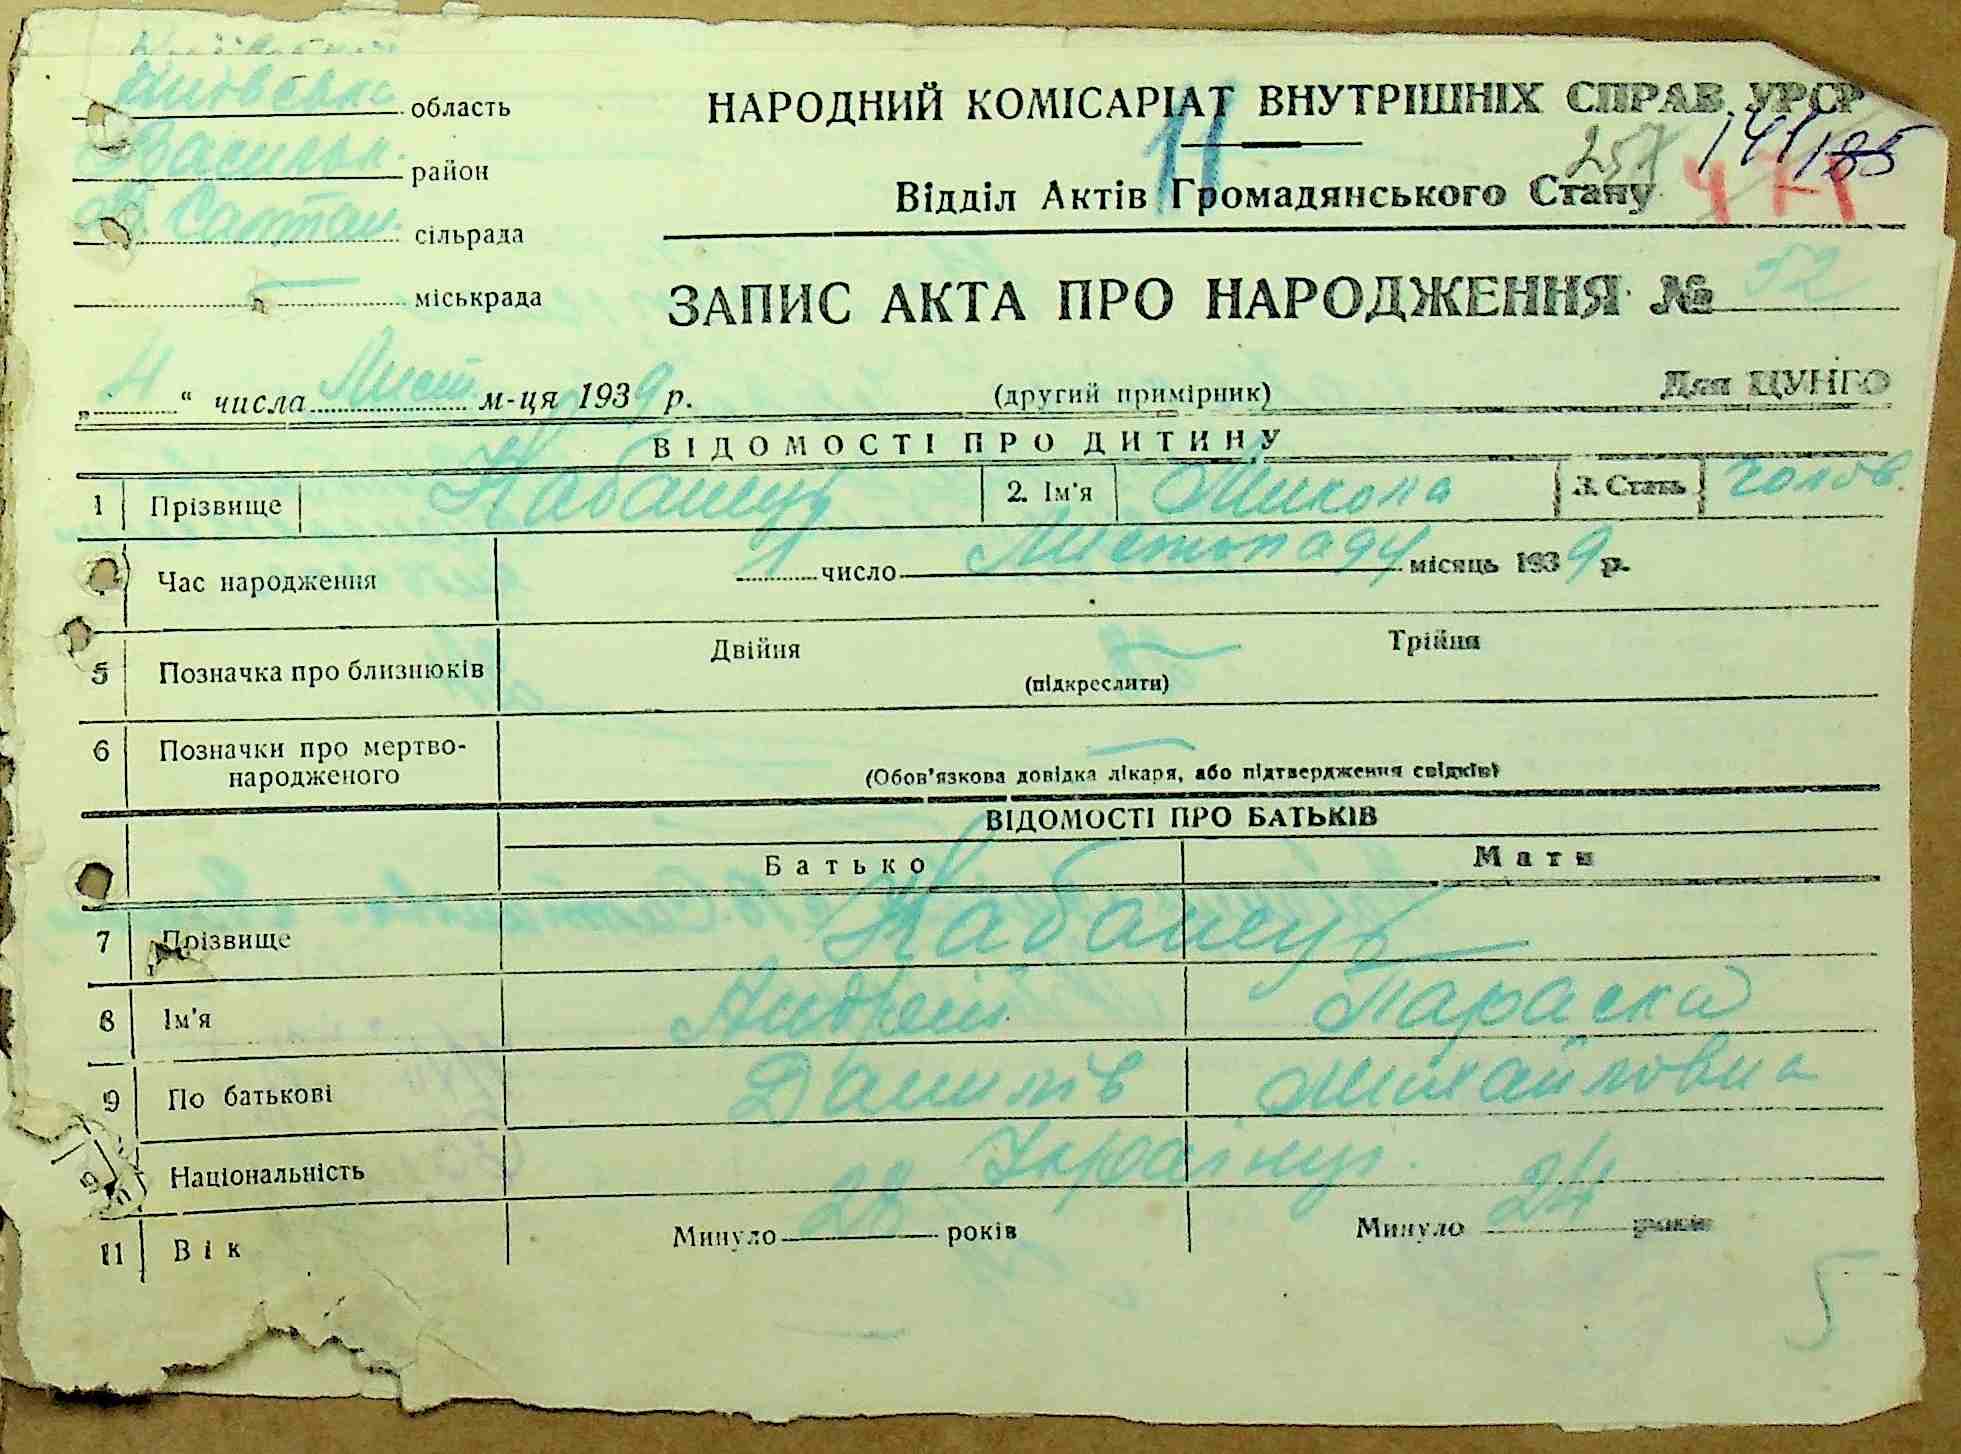 область
НАРОДНИЙ КОМІСАРІАТ ВНУТРІШНІХ СПРАВ УРСР
11
141/185
Васильк. район
257
471
Відділ Актів Громадянського Стану
Салтан. сільрада
— міськрада
ЗАПИС АКТА ПРО НАРОДЖЕННЯ № 52
„ 4 “ числа Лист. м-ця 1939 р.
(другий примірник)
Для ЦУНГО
ВІДОМОСТІ ПРО ДИТИНУ
1 Прізвище Кабанець 2. Ім'я Микола 3. Стать Чолов.
Час народження 1 число Листопаду місяць 1939 р.
5 Позначка про близнюків Двійня — Трійня
(підкреслити)
6 Позначки про мертво-
народженого —
(Обов'язкова довідка лікаря, або підтвердження свідків)
ВІДОМОСТІ ПРО БАТЬКІВ
Батько Мати
7 Прізвище Кабанець —
8 Ім'я Андрій Параска
9 По батькові Данилів Михайловна
Національність Українці.
11 Вік Минуло 28 років Минуло 24 років
5